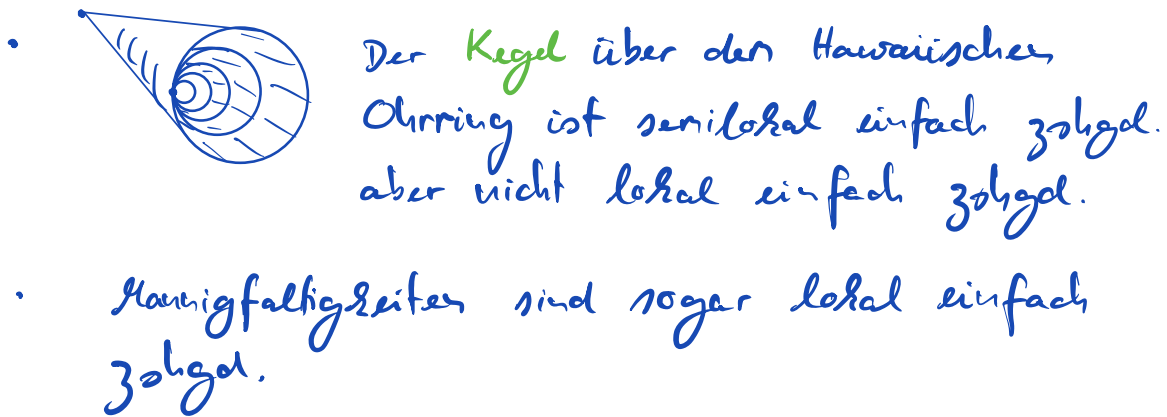 • Der Kegel über dem Hawaiischen
Ohrring ist semilokal einfach zshgd.
aber nicht lokal einfach zshgd.
• Mannigfaltigkeiten sind sogar lokal einfach
zshgd.